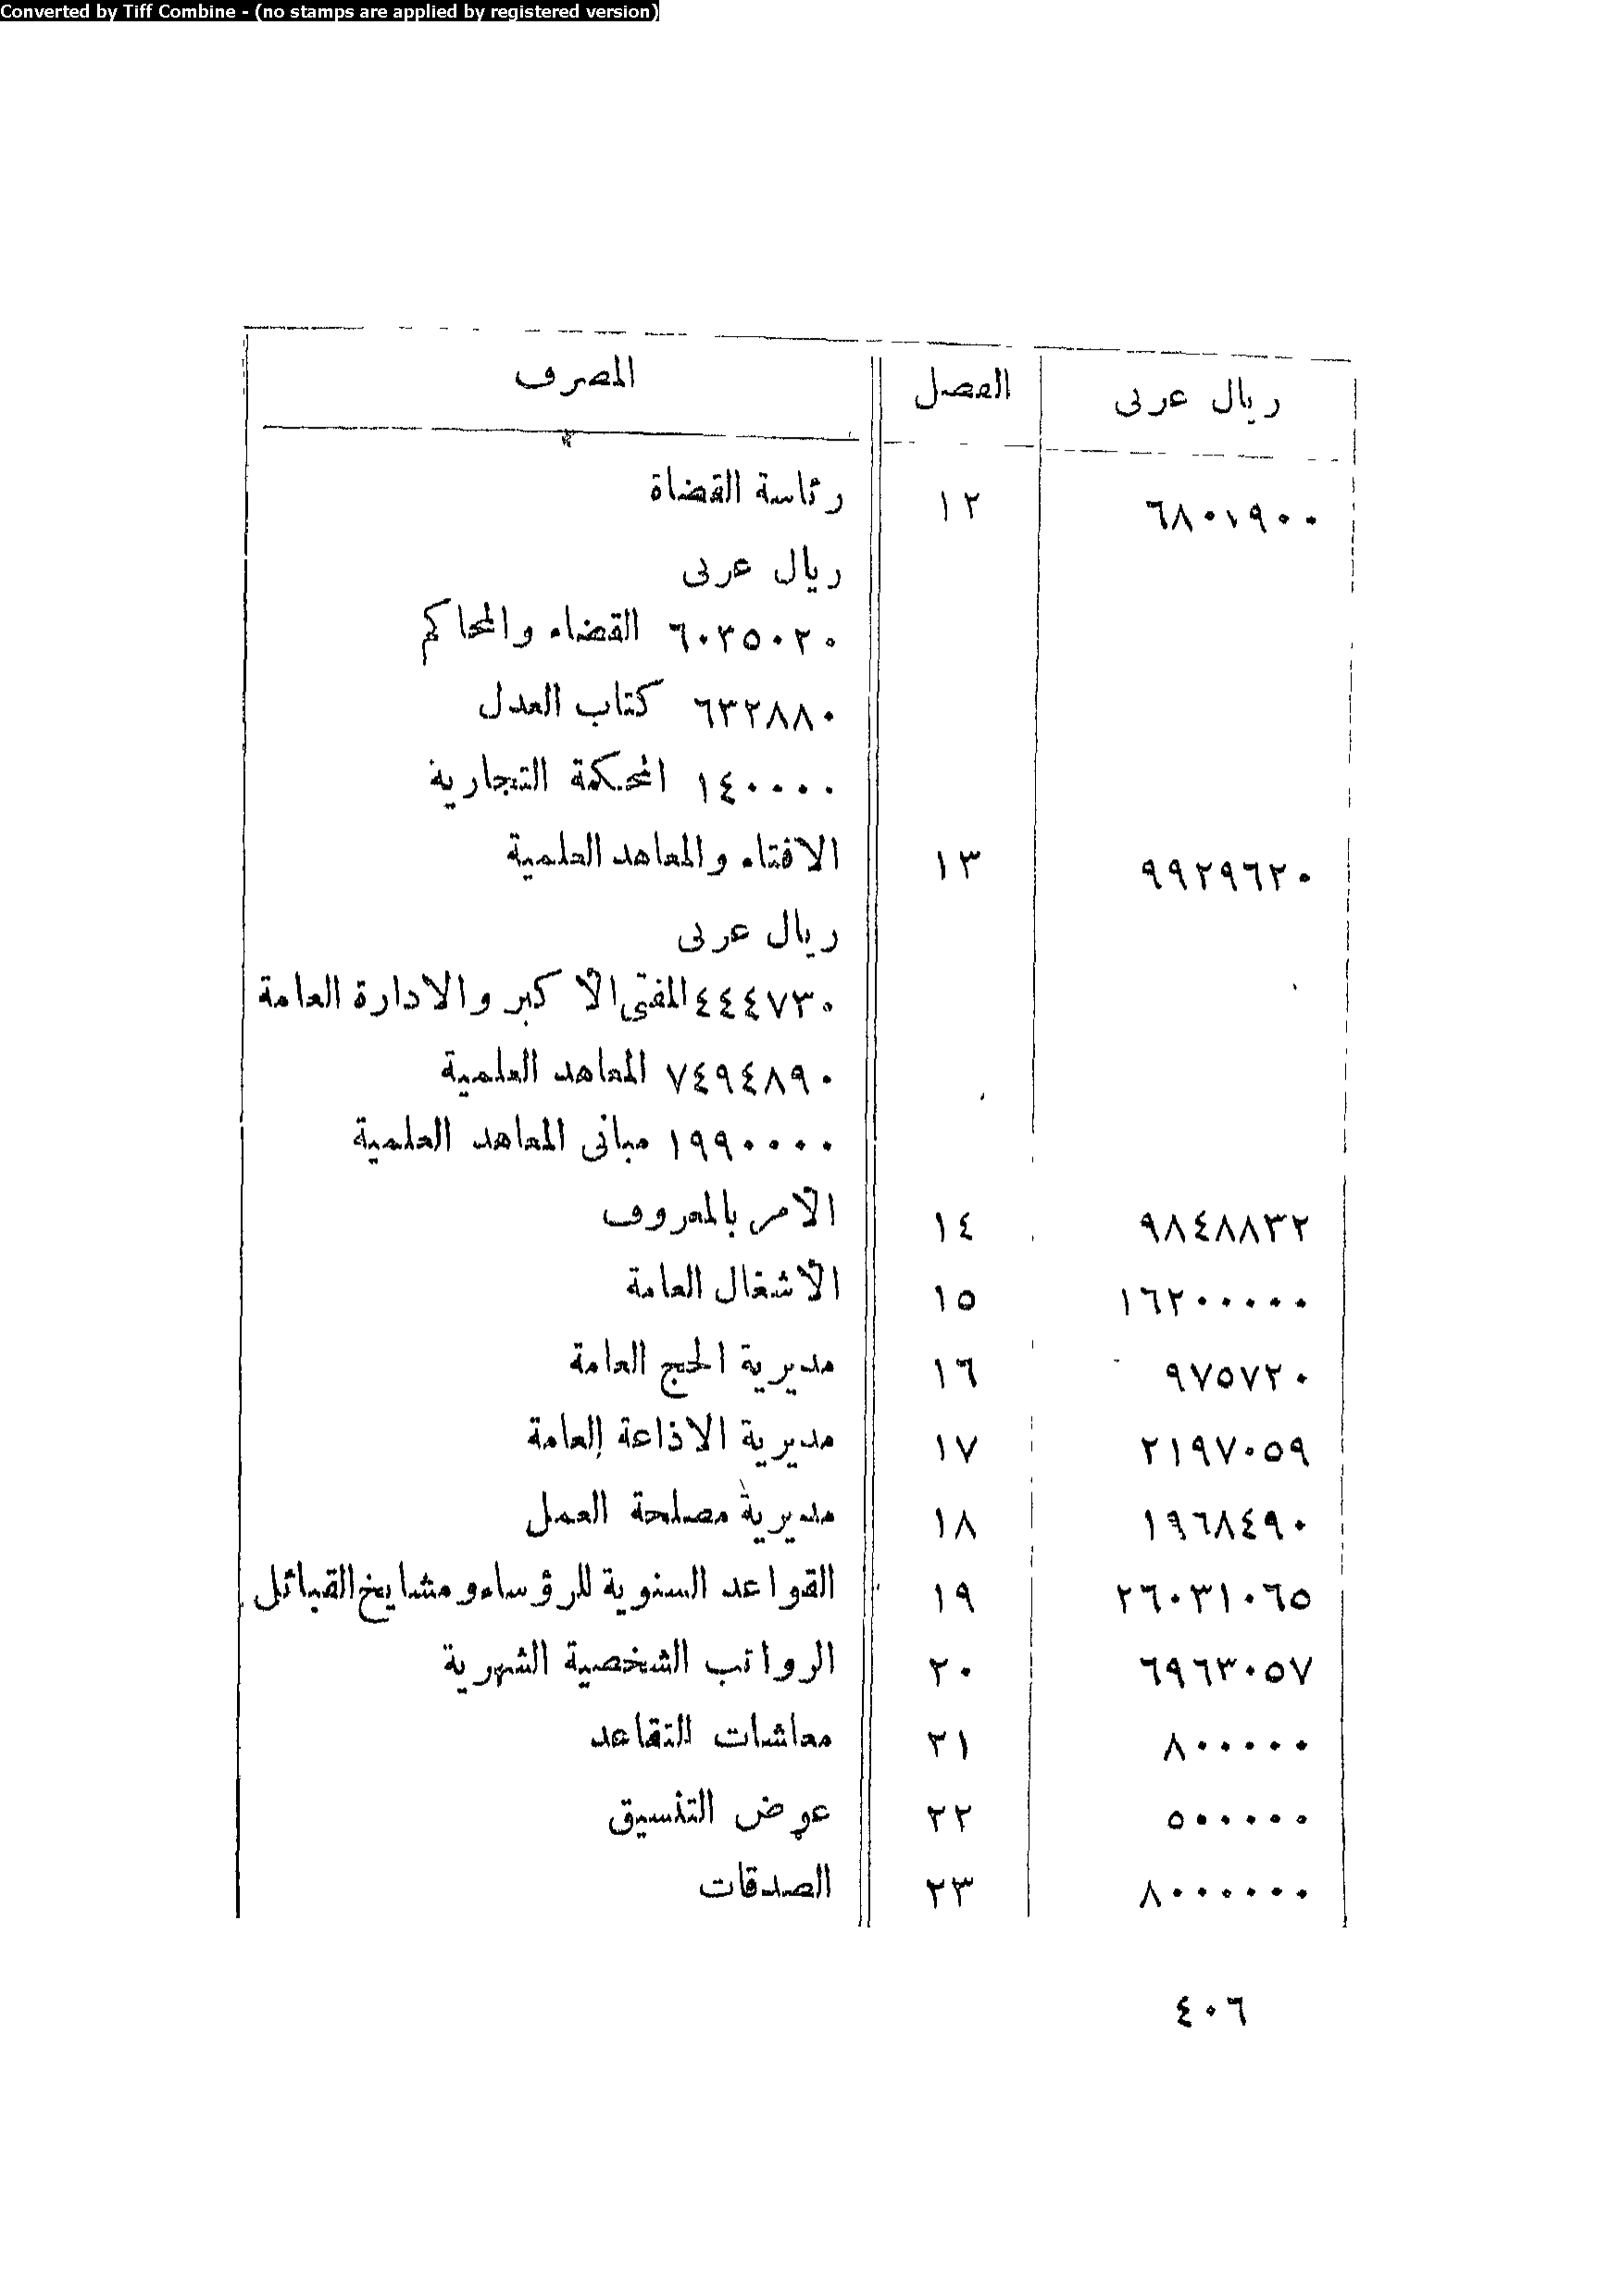 Converted by Tiff Combine - (no stamps are applied by registered version)
ريال عربى الفصل المصرف
٦٨٠١٩٠٠ ١٢ رئاسة القضاة
ريال عربى
٦٠٢٥٠٢٠ القضاء والمحاكم
٦٣٢٨٨٠ كتاب العدل
١٤٠٠٠٠ المحكمة التجارية
٩٩٢٩٦٢٠ ١٣ الافتاء والمعاهد العلمية
ريال عربى
٤٤٤٧٣٠ المفتى الأكبر والادارة العامة
٧٤٩٤٨٩٠ المعاهد العلمية
١٩٩٠٠٠٠ مبانى المعاهد العلمية
٩٨٤٨٨٣٢ ١٤ الأمر بالمعروف
١٦٢٠٠٠٠٠ ١٥ الأشغال العامة
٩٧٥٧٢٠ ١٦ مديرية الحج العامة
٢١٩٧٠٥٩ ١٧ مديرية الاذاعة العامة
١٩٦٨٤٩٠ ١٨ مديرية مصلحة العمل
٢٦٠٣١٠٦٥ ١٩ القواعد السنوية للرؤساء ومشايخ القبائل
٦٩٦٣٠٥٧ ٢٠ الرواتب الشخصية الشهرية
٨٠٠٠٠٠ ٢١ معاشات التقاعد
٥٠٠٠٠٠ ٢٢ عوض التنسيق
٨٠٠٠٠٠٠ ٢٣ الصدقات
٤٠٦